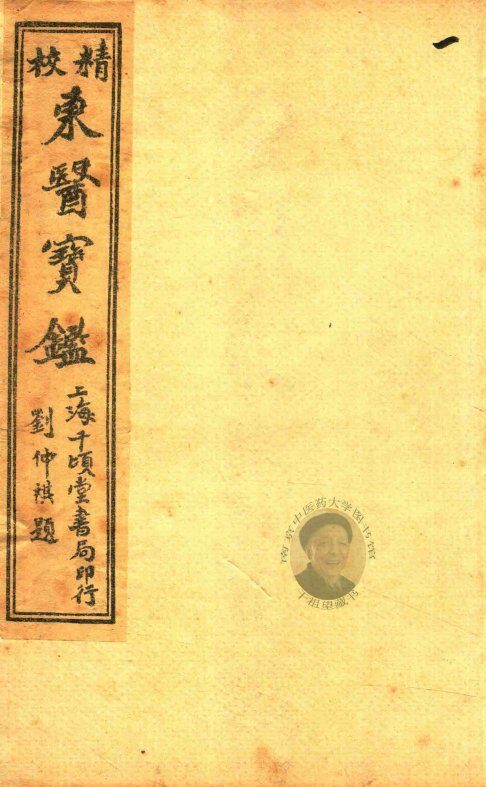 精校
東醫寶鑑
上海千頃堂書局印行
劉仲祺題
一
南京中医药大学图书馆
丁祖望藏书